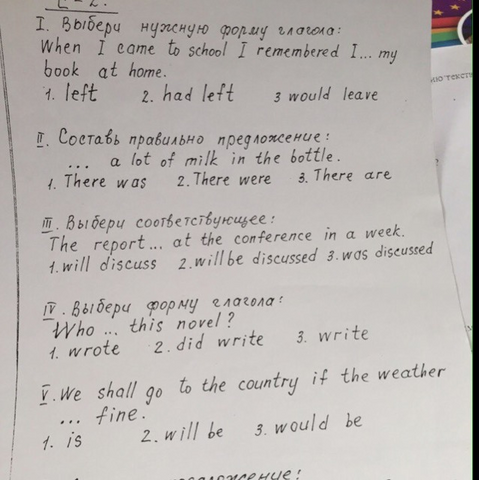 I. Выбери нужную форму глагола:
When I came to school I remembered I... my
book at home.
1. left 2. had left 3 would leave
II. Составь правильно предложение:
... a lot of milk in the bottle.
1. There was 2. There were 3. There are
III. Выбери соответствующее:
The report... at the conference in a week.
1. will discuss 2. will be discussed 3. was discussed
IV. Выбери форму глагола:
Who ... this novel?
1. wrote 2. did write 3. write
V. We shall go to the country if the weather
... fine.
1. is 2. will be 3. would be